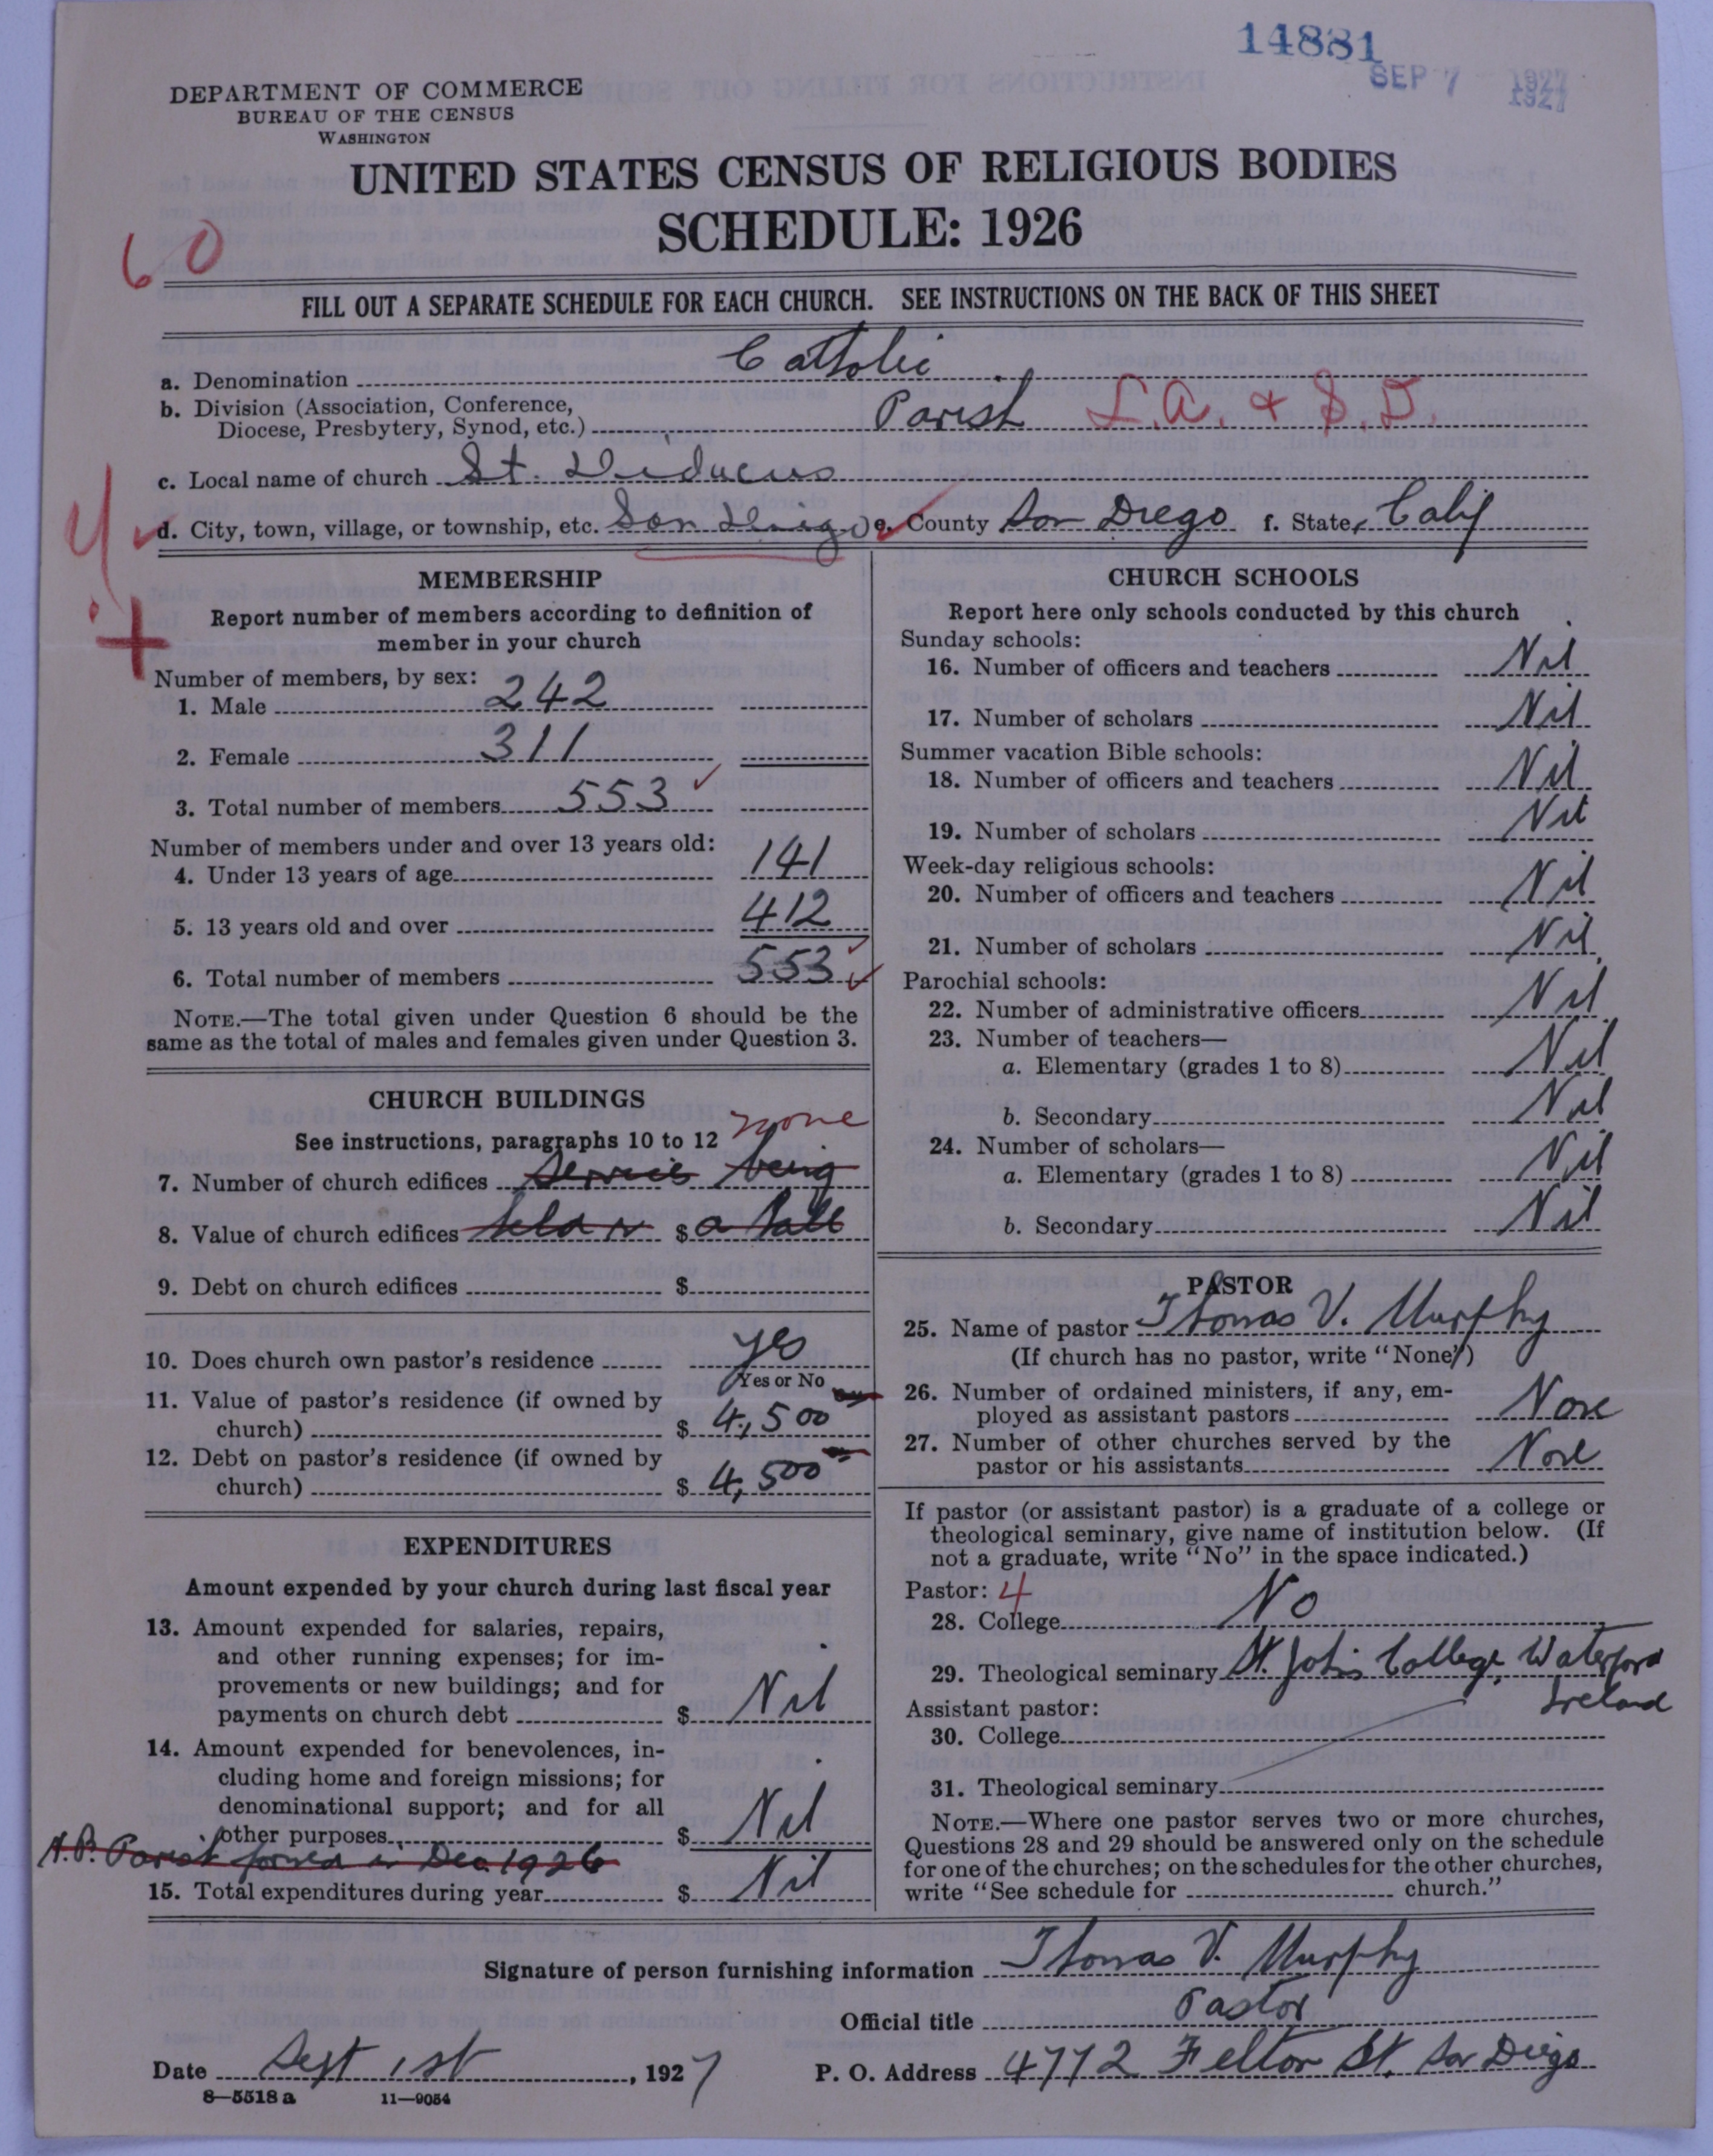 14881
SEP 7 1927
1927
DEPARTMENT OF COMMERCE
BUREAU OF THE CENSUS
WASHINGTON
UNITED STATES CENSUS OF RELIGIOUS BODIES
SCHEDULE: 1926
60
FILL OUT A SEPARATE SCHEDULE FOR EACH CHURCH. SEE INSTRUCTIONS ON THE BACK OF THIS SHEET
a. Denomination Catholic
b. Division (Association, Conference,
Diocese, Presbytery, Synod, etc.) Parish L.A. & S.D.
c. Local name of church St. Didacus
d. City, town, village, or township, etc. San Diego e. County San Diego f. State, Calif
MEMBERSHIP
Report number of members according to definition of
member in your church
Number of members, by sex:
1. Male 242
2. Female 311
3. Total number of members 553
Number of members under and over 13 years old:
4. Under 13 years of age 141
5. 13 years old and over 412
6. Total number of members 553
NOTE.—The total given under Question 6 should be the
same as the total of males and females given under Question 3.
CHURCH BUILDINGS
See instructions, paragraphs 10 to 12 none
7. Number of church edifices Services being
8. Value of church edifices held in $ a hall
9. Debt on church edifices $
10. Does church own pastor's residence yes
Yes or No
11. Value of pastor's residence (if owned by
church) $ 4,500
12. Debt on pastor's residence (if owned by
church) $ 4,500
EXPENDITURES
Amount expended by your church during last fiscal year
13. Amount expended for salaries, repairs,
and other running expenses; for im-
provements or new buildings; and for
payments on church debt $ Nil
14. Amount expended for benevolences, in-
cluding home and foreign missions; for
denominational support; and for all
other purposes $ Nil
Parish formed in Dec 1926
15. Total expenditures during year $ Nil
CHURCH SCHOOLS
Report here only schools conducted by this church
Sunday schools:
16. Number of officers and teachers Nil
17. Number of scholars Nil
Summer vacation Bible schools:
18. Number of officers and teachers Nil
19. Number of scholars Nil
Week-day religious schools:
20. Number of officers and teachers Nil
21. Number of scholars Nil
Parochial schools:
22. Number of administrative officers Nil
23. Number of teachers—
a. Elementary (grades 1 to 8) Nil
b. Secondary Nil
24. Number of scholars—
a. Elementary (grades 1 to 8) Nil
b. Secondary Nil
PASTOR
25. Name of pastor Thomas V. Murphy
(If church has no pastor, write "None")
26. Number of ordained ministers, if any, em-
ployed as assistant pastors None
27. Number of other churches served by the
pastor or his assistants None
If pastor (or assistant pastor) is a graduate of a college or
theological seminary, give name of institution below. (If
not a graduate, write "No" in the space indicated.)
Pastor: 4
28. College No
29. Theological seminary St. Johns College, Waterford
Ireland
Assistant pastor:
30. College
31. Theological seminary
NOTE.—Where one pastor serves two or more churches,
Questions 28 and 29 should be answered only on the schedule
for one of the churches; on the schedules for the other churches,
write "See schedule for church."
Signature of person furnishing information Thomas V. Murphy
Official title Pastor
Date Sept 1st, 1927 P. O. Address 4772 Felton St. San Diego
8—5518 a 11—9054